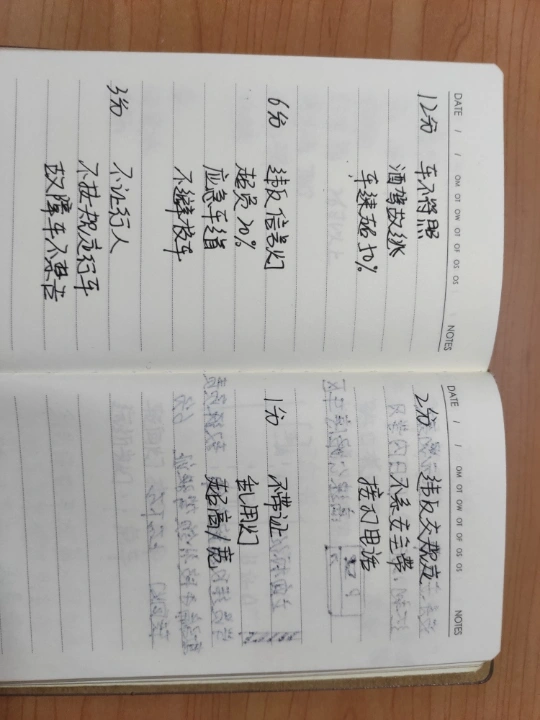 DATE / / OM OT OW OT OF OS OS NOTES
12分 车不符照
酒驾故逃
车速超50%
6分 违反信号灯
超员20%
应急车道
不避校车
3分 不让行人
不按规定行车
故障车不警告
DATE / / OM OT OW OT OF OS OS NOTES
2分 违反交规定
不系安全带
接打电话
1分 不带证
乱用灯
超高/宽